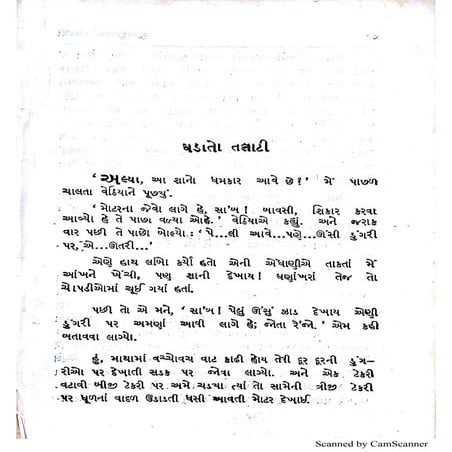 ઘડાતો તલાટી
‘અલ્યા, આ શાનો ધમકાર આવે છે?’ મેં પાછળ
ચાલતા વેઠિયાને પૂછ્યું.
‘મોટરના જેવો લાગે હે, સા'બ! બાવસી, શિકાર કરવા
આવ્યો હે તે પાછા વળ્યા ઓહે.’ વેઠિયાએ કહ્યું. અને જરાક
વાર પછી તે પાછો બોલ્યો: ‘પે...લી આવે...પણે...ઊંસી ડુંગરી
પર, એ...ઊતરી...’
એણે હાથ લાંબો કર્યો હતો એની એંધાણીએ તાકતાં મેં
આંખને ખેંચી, પણ શાની દેખાય! ઘણાંખરાં તેજ તો
ચોપડીઓમાં ચૂઈ ગયાં હતાં.
પછી તો એ મને, ‘સા'બ! પેલું ઊંસું ઝાડ દેખાય એણી
ડુંગરી પર અમણાં આવી લાગે હે; જોતા રે'જો.’ એમ કહી
બતાવવા લાગ્યો.
હું, માથામાં વચ્ચોવચ વાટ કાઢી હોય તેવી દૂર દૂરની ડુંગ-
રીઓ પર દેખાતી સડક પર જોવા લાગ્યો. અને એક ટેકરી
વટાવી બીજી ટેકરી પર અમે ચડ્યા ત્યાં તો સામેની ત્રીજી ટેકરી
પર ધૂળનાં વાદળ ઉડાડતી ધસી આવતી મોટર દેખાઈ.
Scanned by CamScanner